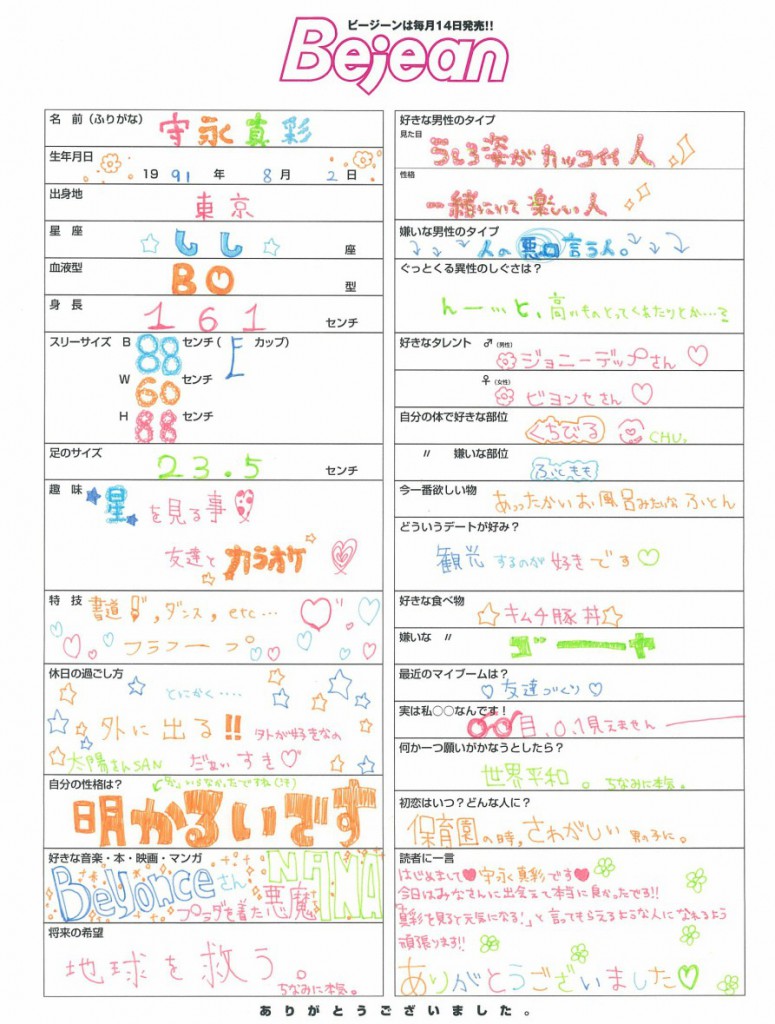 ビージーンは毎月14日発売!!
Bejean
名 前(ふりがな)
守永真彩
生年月日
1991年8月2日
出身地
東京
星 座
しし座
血液型
BO型
身 長
161センチ
スリーサイズ B 88センチ(Eカップ)
W 60センチ
H 88センチ
足のサイズ
23.5センチ
趣 味
星を見る事
友達とカラオケ
特 技
書道,ダンス,etc…
フラフープ
休日の過ごし方
とにかく‥‥
外に出る!!外が好きなの
太陽さんSAN だぁいすき♡
自分の性格は?
明かるいです
好きな音楽・本・映画・マンガ
Beyonceさん NANA
プラダを着た悪魔
将来の希望
地球を救う。
ちなみに本気。
好きな男性のタイプ
見た目
うしろ姿がカッコイイ人
性格
一緒にいて楽しい人
嫌いな男性のタイプ
人の悪口言う人。
ぐっとくる異性のしぐさは?
んー…と、高いものとってくれたりとか…
好きなタレント ♂(男性)
ジョニーデップさん♡
♀(女性)
ビヨンセさん♡
自分の体で好きな部位
くちびる CHU。
〃 嫌いな部位
ふともも
今一番欲しい物
あったかいお風呂みたいなふとん
どういうデートが好み?
観光するのが好きです♡
好きな食べ物
☆キムチ豚丼☆
嫌いな 〃
ゴーーヤ
最近のマイブームは?
♡友達づくり♡
実は私○○なんです!
目、0.1見えません
何か一つ願いがかなうとしたら?
世界平和。ちなみに本気。
初恋はいつ?どんな人に?
保育園の時,さわがしい男の子に。
読者に一言
はじめまして♥守永真彩です♥
今日はみなさんに出会えて本当に良かったでる!!
「真彩を見ると元気になる!」と言ってもらえるような人になれるよう
頑張ります!!
ありがとうございました♡
ありがとうございました。